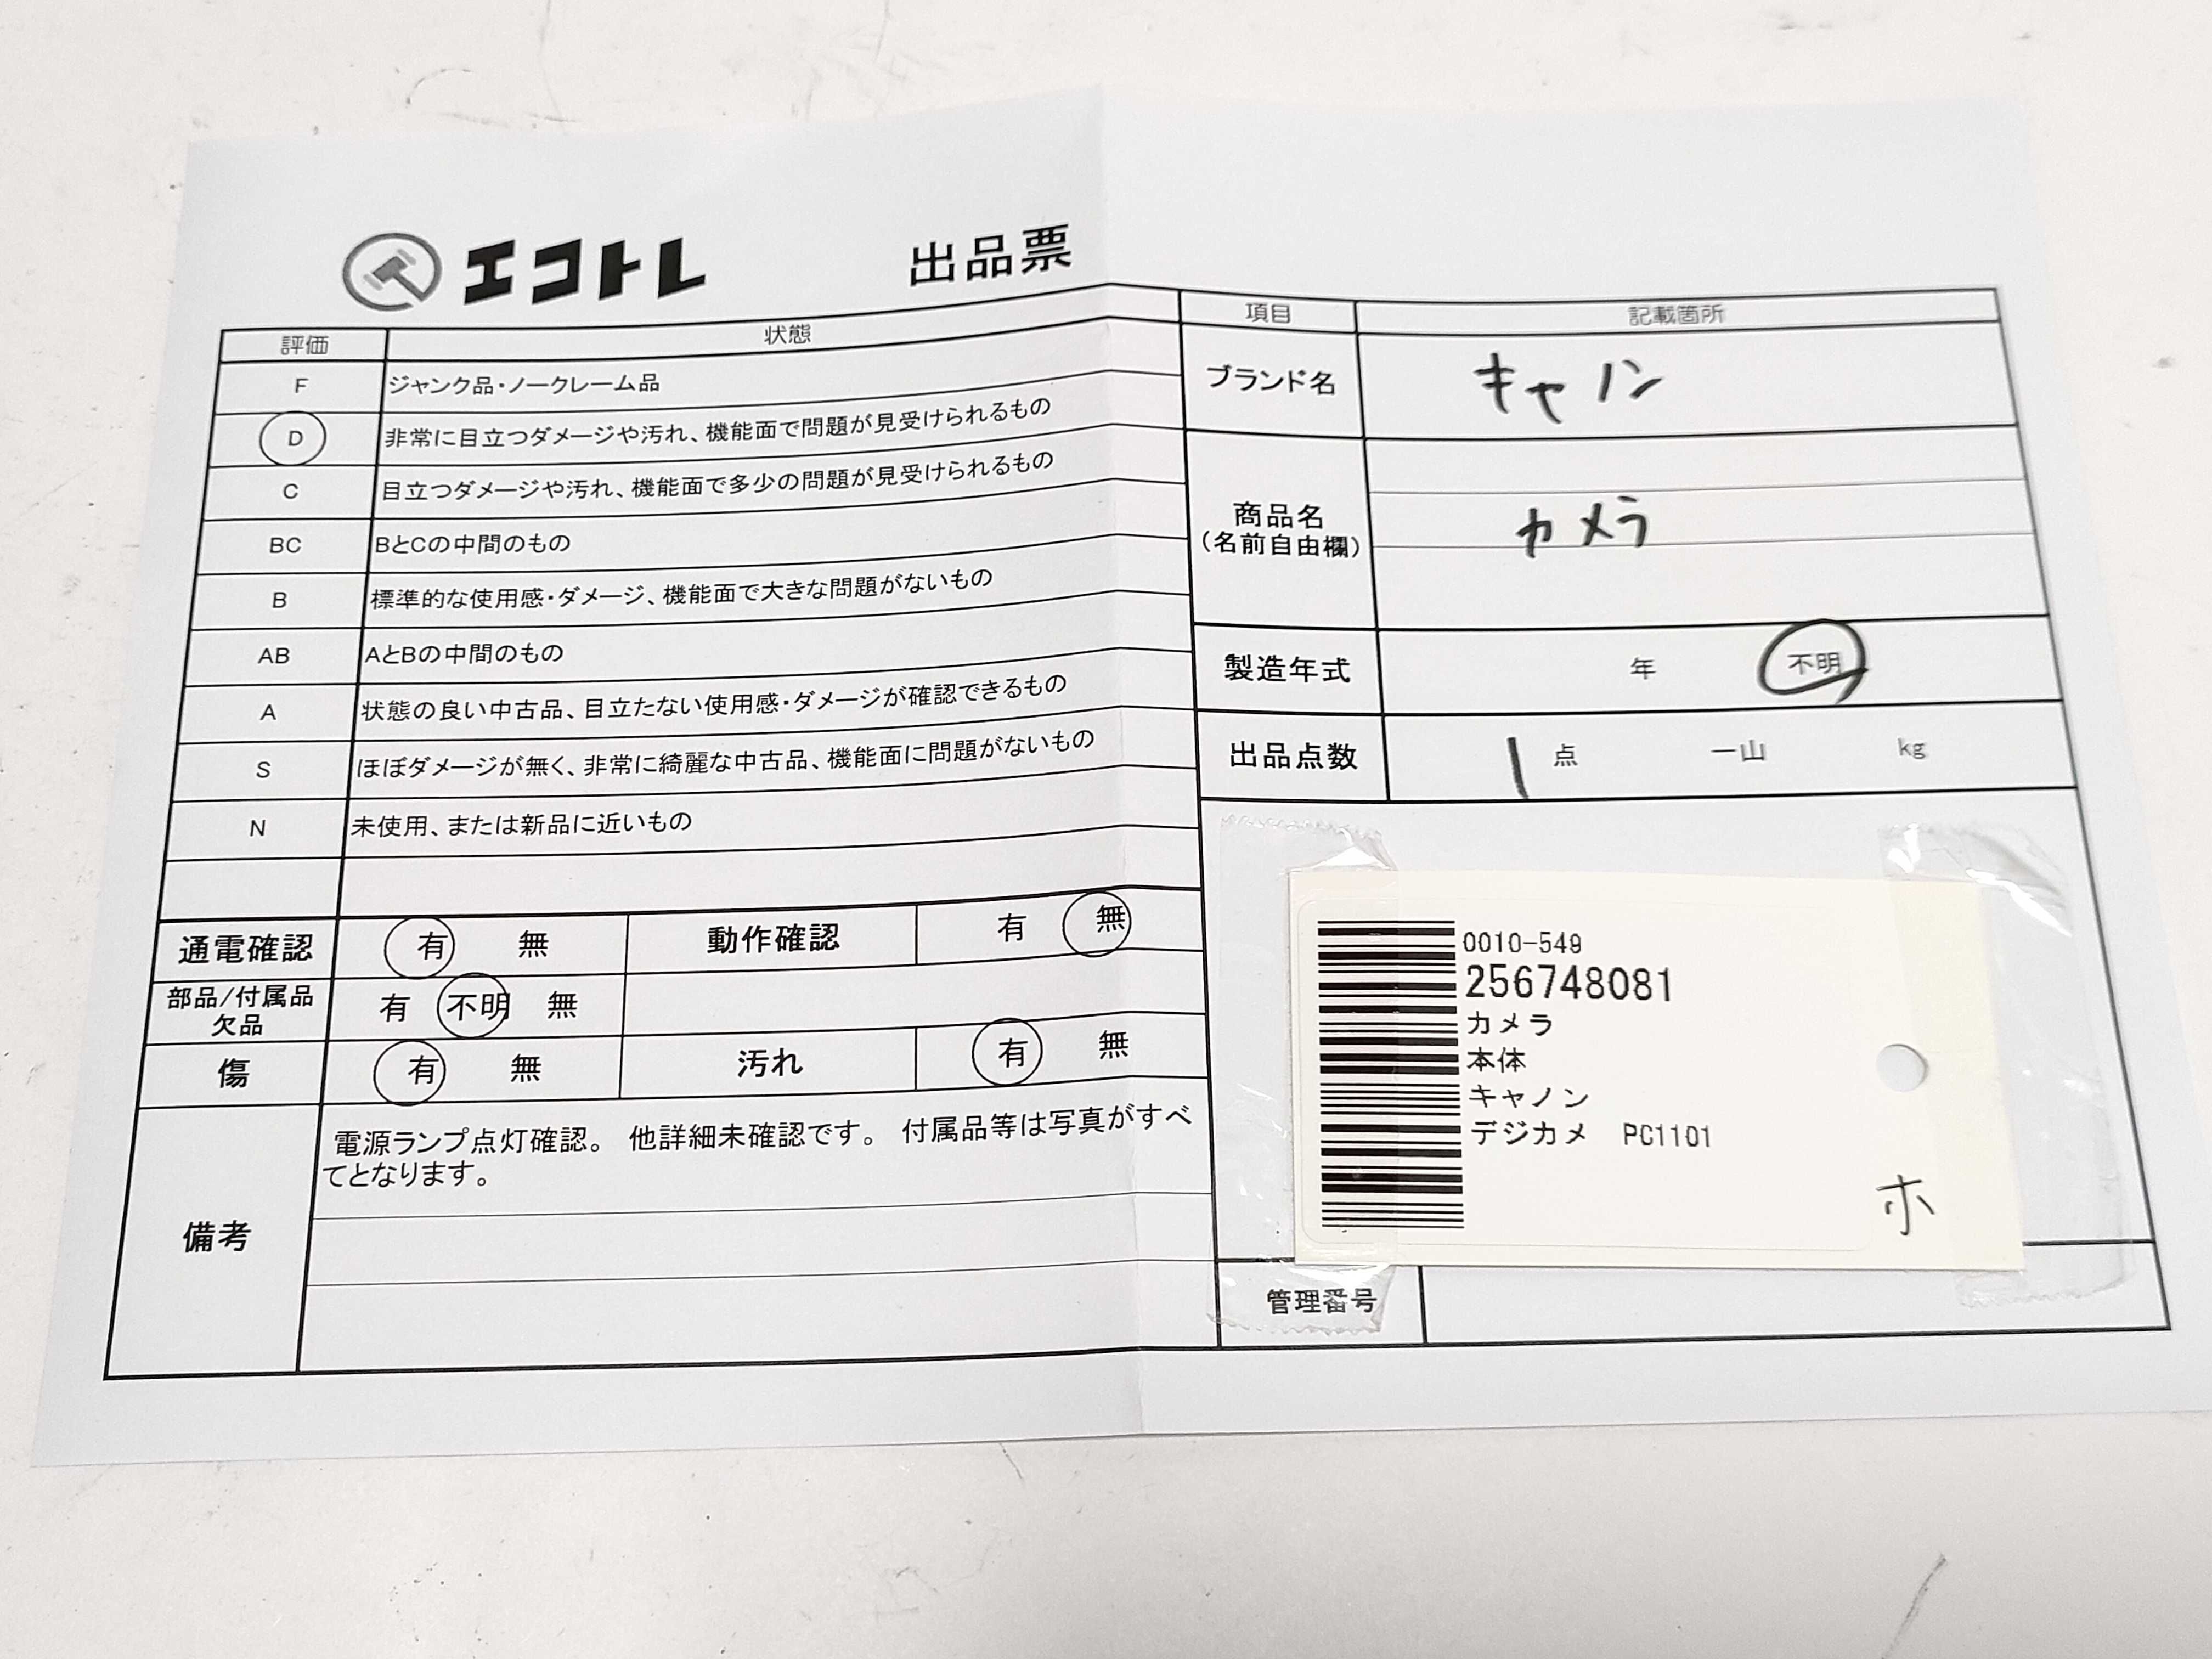 エコトレ 出品票
評価 状態
F ジャンク品・ノークレーム品
D 非常に目立つダメージや汚れ、機能面で問題が見受けられるもの
C 目立つダメージや汚れ、機能面で多少の問題が見受けられるもの
BC BとCの中間のもの
B 標準的な使用感・ダメージ、機能面で大きな問題がないもの
AB AとBの中間のもの
A 状態の良い中古品、目立たない使用感・ダメージが確認できるもの
S ほぼダメージが無く、非常に綺麗な中古品、機能面に問題がないもの
N 未使用、または新品に近いもの
通電確認 有 無 動作確認 有 無
部品/付属品 有 不明 無
欠品
傷 有 無 汚れ 有 無
備考
電源ランプ点灯確認。 他詳細未確認です。 付属品等は写真がすべ
てとなります。
項目 記載箇所
ブランド名 キャノン
商品名
(名前自由欄)
カメラ
製造年式 年 不明
出品点数 1 点 一山 kg
0010-549
256748081
カメラ
本体
キャノン
デジカメ PC1101
ホ
管理番号